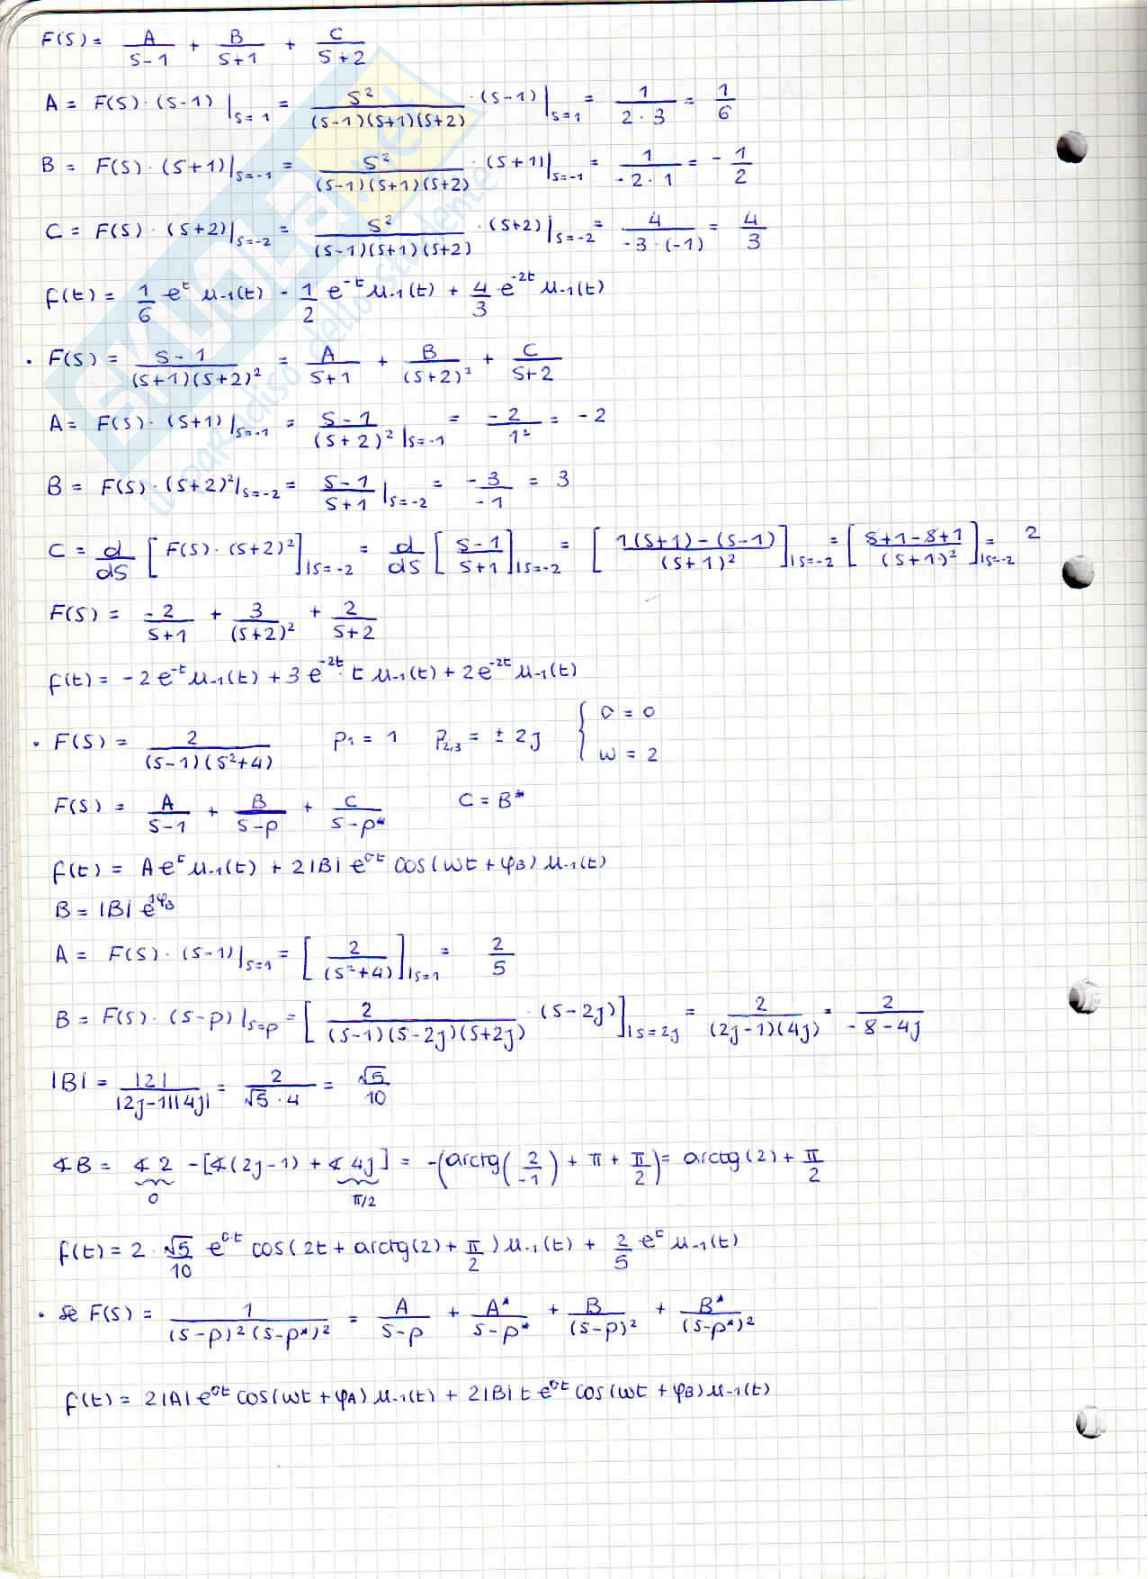 F(S) = A/(S-1) + B/(S+1) + C/(S+2)
A = F(S)·(S-1)|s=1 = S²/((S-1)(S+1)(S+2)) ·(S-1)|s=1 = 1/(2·3) = 1/6
B = F(S)·(S+1)|s=-1 = S²/((S-1)(S+1)(S+2)) ·(S+1)|s=-1 = 1/(-2·1) = -1/2
C = F(S)·(S+2)|s=-2 = S²/((S-1)(S+1)(S+2)) ·(S+2)|s=-2 = 4/(-3·(-1)) = 4/3
f(t) = 1/6 e^t μ-1(t) - 1/2 e^-t μ-1(t) + 4/3 e^-2t μ-1(t)
· F(S) = (S-1)/((S+1)(S+2)²) = A/(S+1) + B/(S+2)² + C/(S+2)
A = F(S)·(S+1)|s=-1 = (S-1)/(S+2)²|s=-1 = -2/1² = -2
B = F(S)·(S+2)²|s=-2 = (S-1)/(S+1)|s=-2 = -3/-1 = 3
C = d/dS [F(S)·(S+2)²]|s=-2 = d/dS [(S-1)/(S+1)]|s=-2 = [(1(S+1)-(S-1))/(S+1)²]|s=-2 = [(S+1-S+1)/(S+1)²]|s=-2 = 2
F(S) = -2/(S+1) + 3/(S+2)² + 2/(S+2)
f(t) = -2e^-t μ-1(t) + 3e^-2t · t μ-1(t) + 2e^-2t μ-1(t)
· F(S) = 2/((S-1)(S²+4)) p1 = 1 p2,3 = ± 2j { σ = 0
ω = 2
F(S) = A/(S-1) + B/(S-p) + C/(S-p*) C = B*
f(t) = A e^t μ-1(t) + 2|B| e^σt cos(ωt + φB) μ-1(t)
B = |B| e^jφB
A = F(S)·(S-1)|s=1 = [2/(S²+4)]|s=1 = 2/5
B = F(S)·(S-p)|s=p = [2/((S-1)(S-2j)(S+2j)) ·(S-2j)]|s=2j = 2/((2j-1)(4j)) = 2/(-8-4j)
|B| = |2|/(|2j-1||4j|) = 2/(√5·4) = √5/10
∢B = ∢2 - [∢(2j-1) + ∢4j] = -(arctg(2/-1) + π + π/2) = arctg(2) + π/2
0 π/2
f(t) = 2·√5/10 e^σt cos(2t + arctg(2) + π/2) μ-1(t) + 2/5 e^t μ-1(t)
· Se F(S) = 1/((S-p)²(S-p*)²) = A/(S-p) + A*/(S-p*) + B/(S-p)² + B*/(S-p*)²
f(t) = 2|A| e^σt cos(ωt + φA) μ-1(t) + 2|B| t e^σt cos(ωt + φB) μ-1(t)